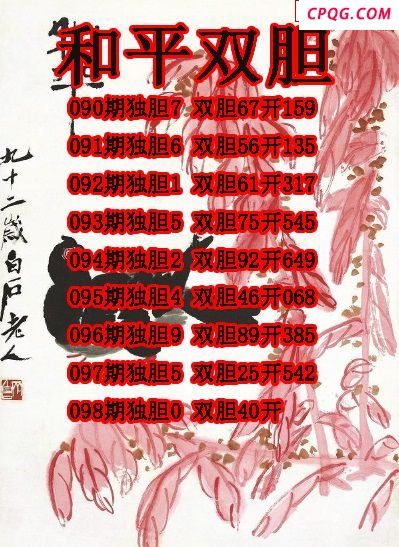 CPQG.COM
和平双胆
090期独胆7 双胆67开159
091期独胆6 双胆56开135
092期独胆1 双胆61开317
093期独胆5 双胆75开545
094期独胆2 双胆92开649
095期独胆4 双胆46开068
096期独胆9 双胆89开385
097期独胆5 双胆25开542
098期独胆0 双胆40开
九十二岁白石老人